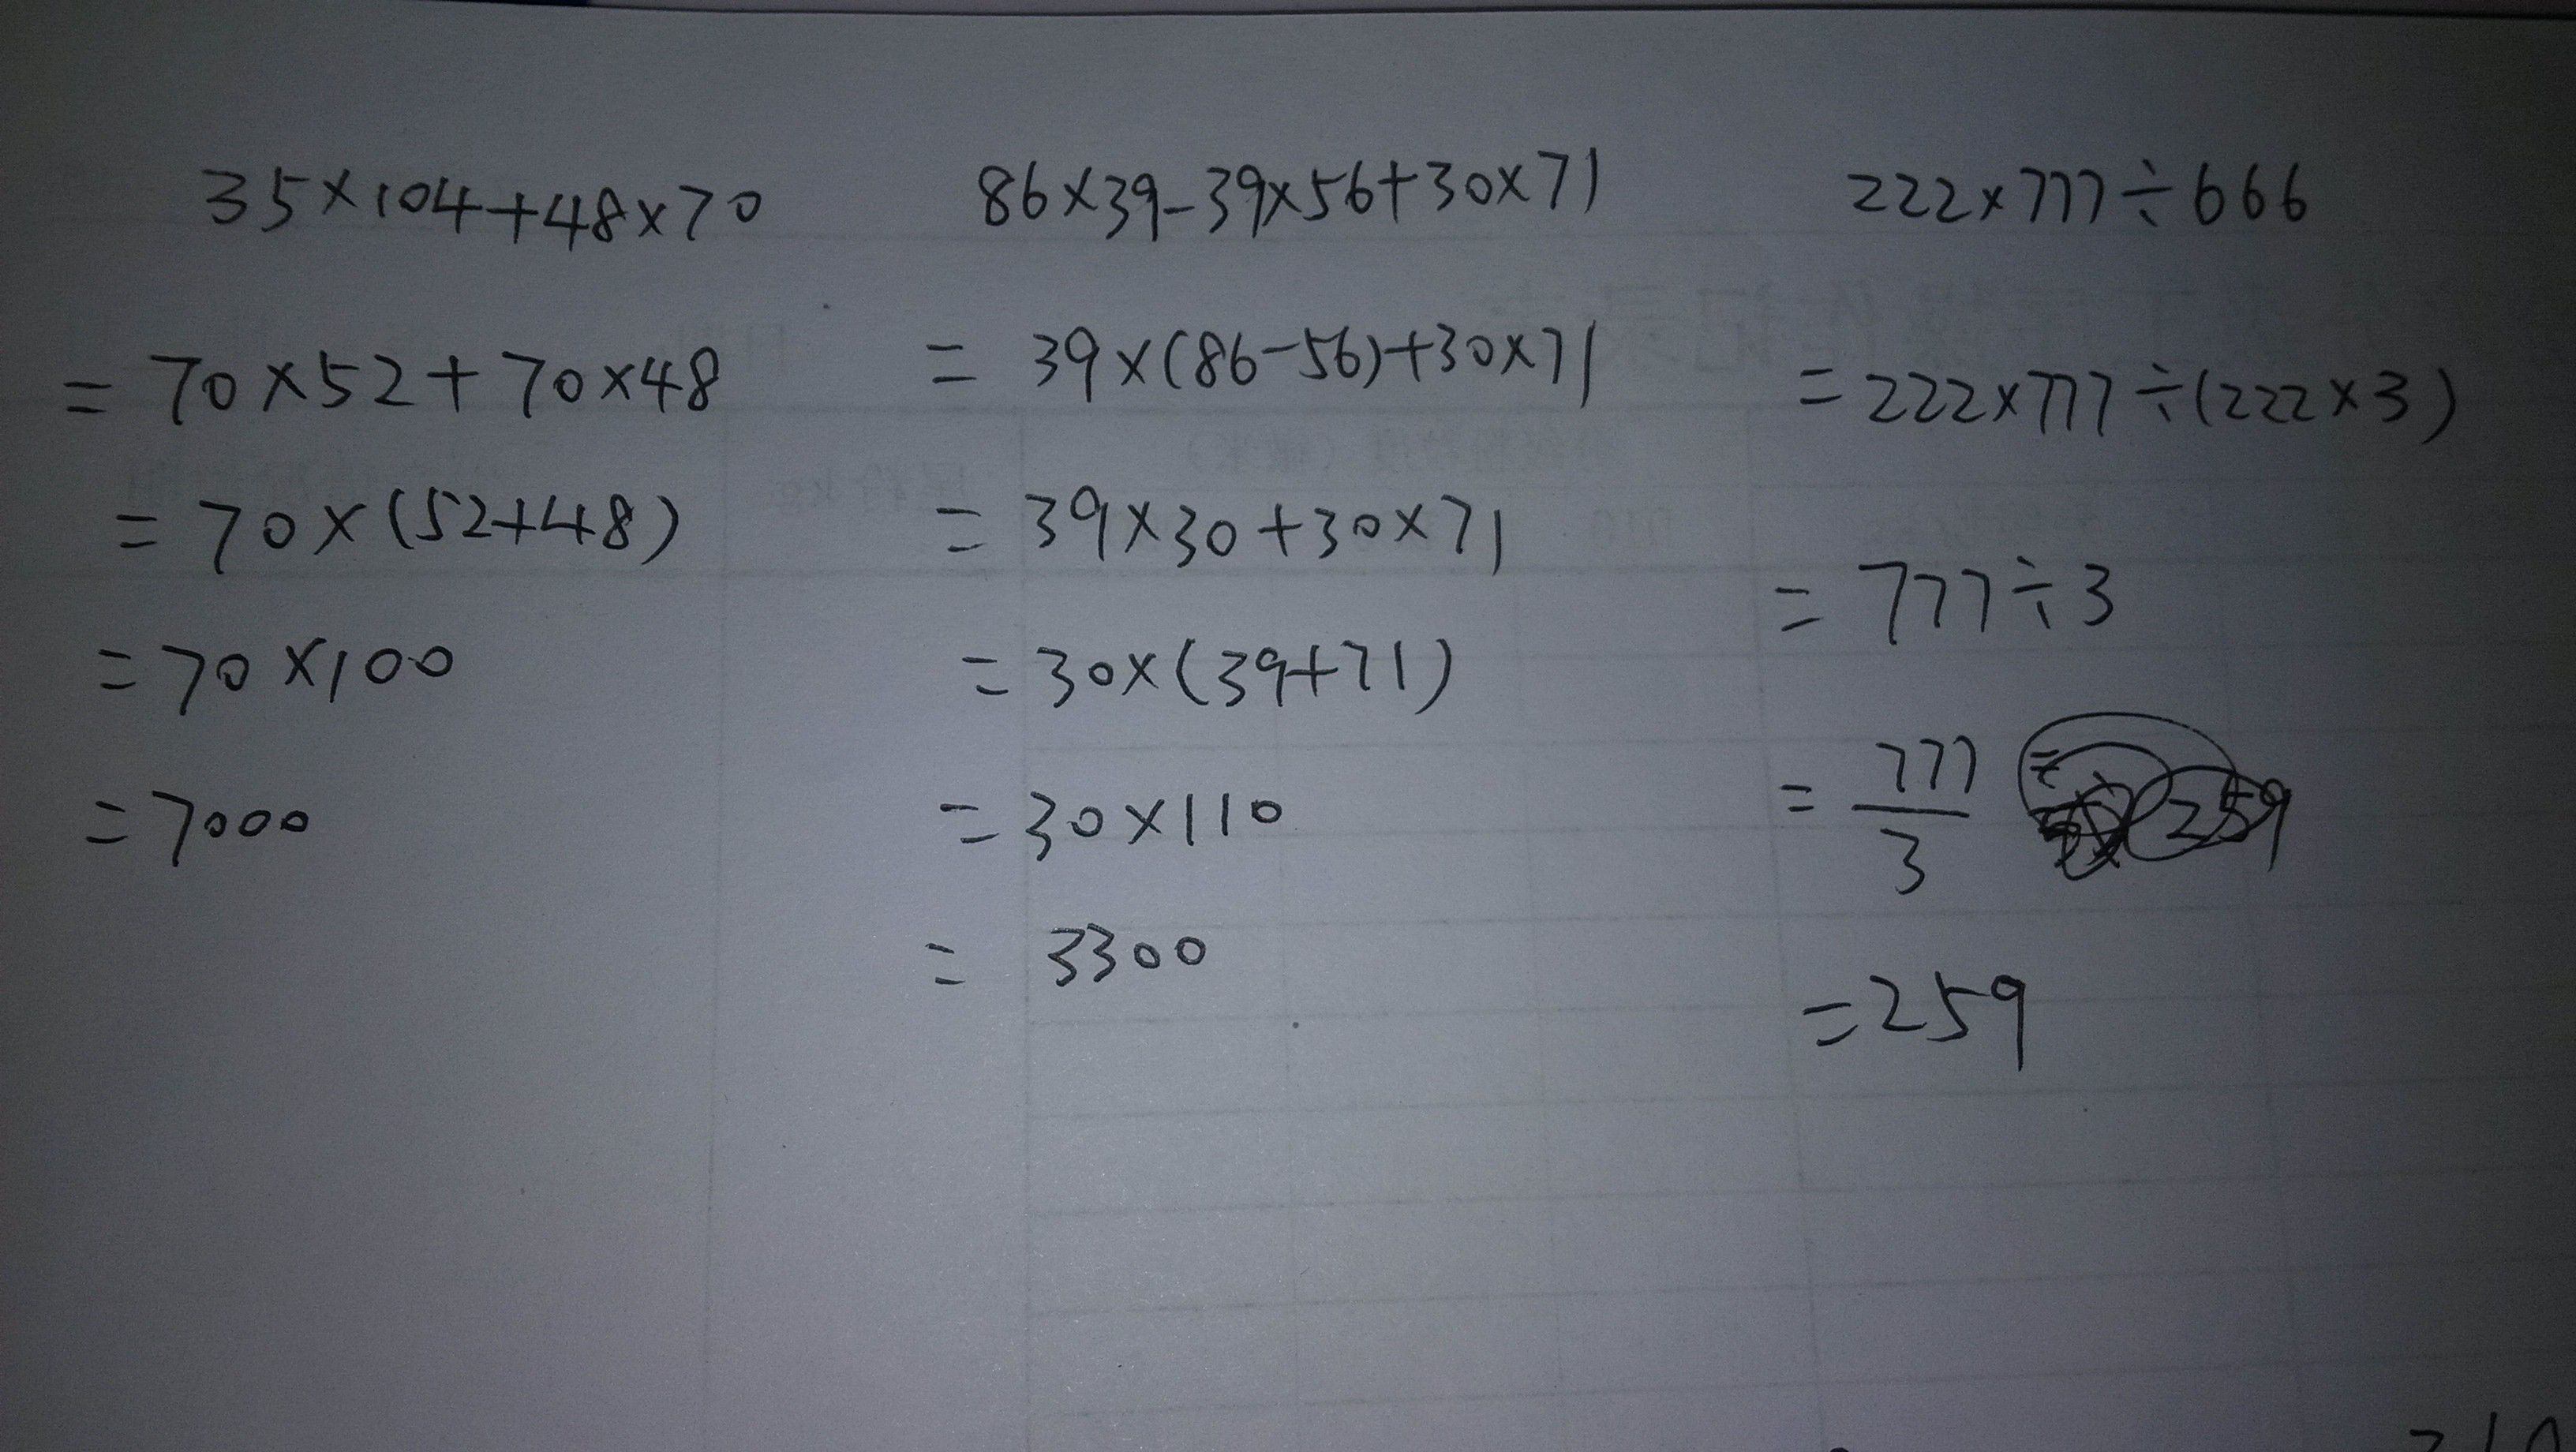 35×104+48×70
=70×52+70×48
=70×(52+48)
=70×100
=7000
86×39-39×56+30×71
=39×(86-56)+30×71
=39×30+30×71
=30×(39+71)
=30×110
=3300
222×777÷666
=222×777÷(222×3)
=777÷3
=777/3 259
=259